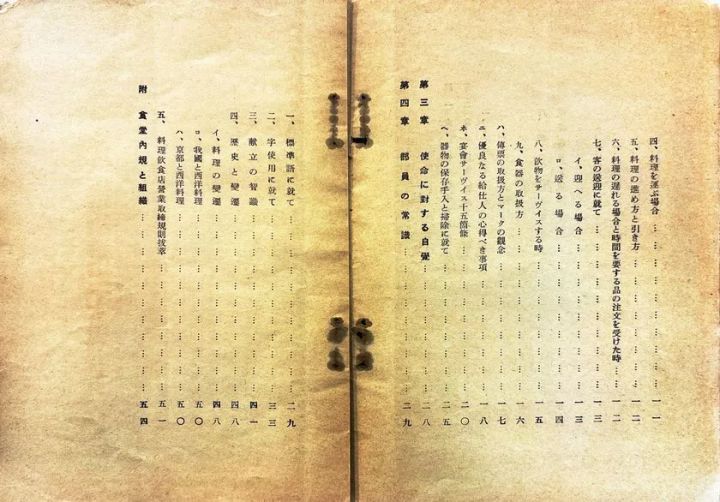 四、料理を運ぶ場合 … … … … … … … … 一一
五、料理の進め方と引き方 … … … … … … … 一二
六、料理の遅れる場合と時間を要する品の注文を受けた時 … … 一二
七、客の送迎に就て … … … … … … … … 一三
イ、迎へる場合 … … … … … … … … 一三
ロ、送る場合 … … … … … … … … 一四
八、飲物をサーヴイスする時 … … … … … … … 一五
九、食器の取扱方 … … … … … … … … 一六
ハ、傳票の取扱方とマークの觀念 … … … … … … 一七
ニ、優良なる給仕人の心得べき事項 … … … … … … 一八
ホ、宴會サーヴイス十五箇條 … … … … … … … 二〇
ヘ、器物の保存手入と掃除に就て … … … … … … 二五
第三章 使命に對する自覺 … … … … … … 二八
第四章 部員の常識 … … … … … … … 二九
一、標準語に就て … … … … … … … … 二九
二、字使用に就て … … … … … … … … 三三
三、献立の智識 … … … … … … … … 四一
四、歴史と變遷 … … … … … … … … 四八
イ、料理の變遷 … … … … … … … … 四八
ロ、我國と西洋料理 … … … … … … … 五〇
ハ、京都と西洋料理 … … … … … … … 五〇
五、料理飲食店營業取締規則拔萃 … … … … … … 五一
附 食堂內規と組織 … … … … … … … 五四